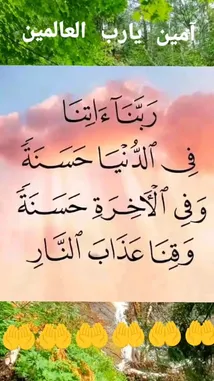 آمين يارب العالمين
رَبَّنَآ ءَاتِنَا
فِي ٱلدُّنْيَا حَسَنَةً
وَفِي ٱلْأَخِرَةِ حَسَنَةً
وَقِنَا عَذَابَ ٱلنَّارِ